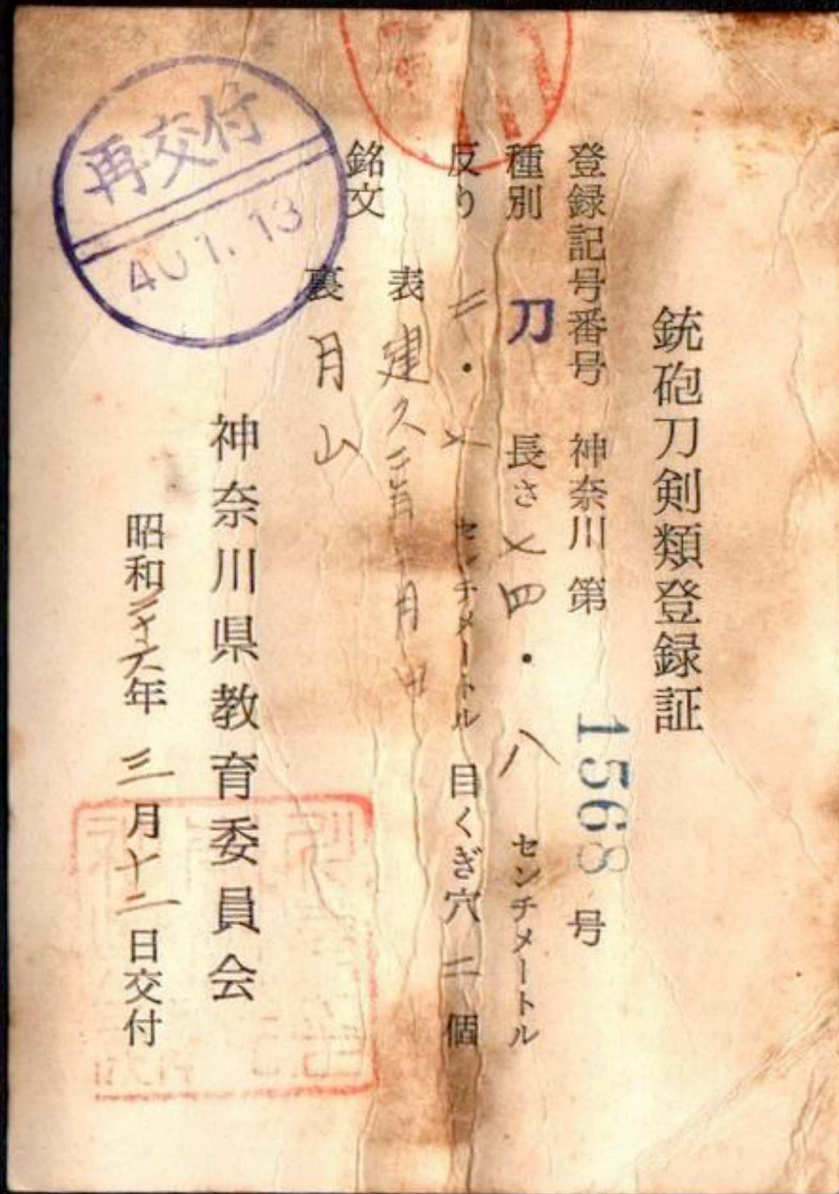 銃砲刀剣類登録証
登録記号番号 神奈川 第 1568 号
種別 刀 長さ 七四・八 センチメートル
反り 二・七 センチメートル 目くぎ穴 二 個
銘文 表 建久
裏 月山
神奈川県教育委員会
昭和 年 三月十二日交付
再交付
40 1. 13